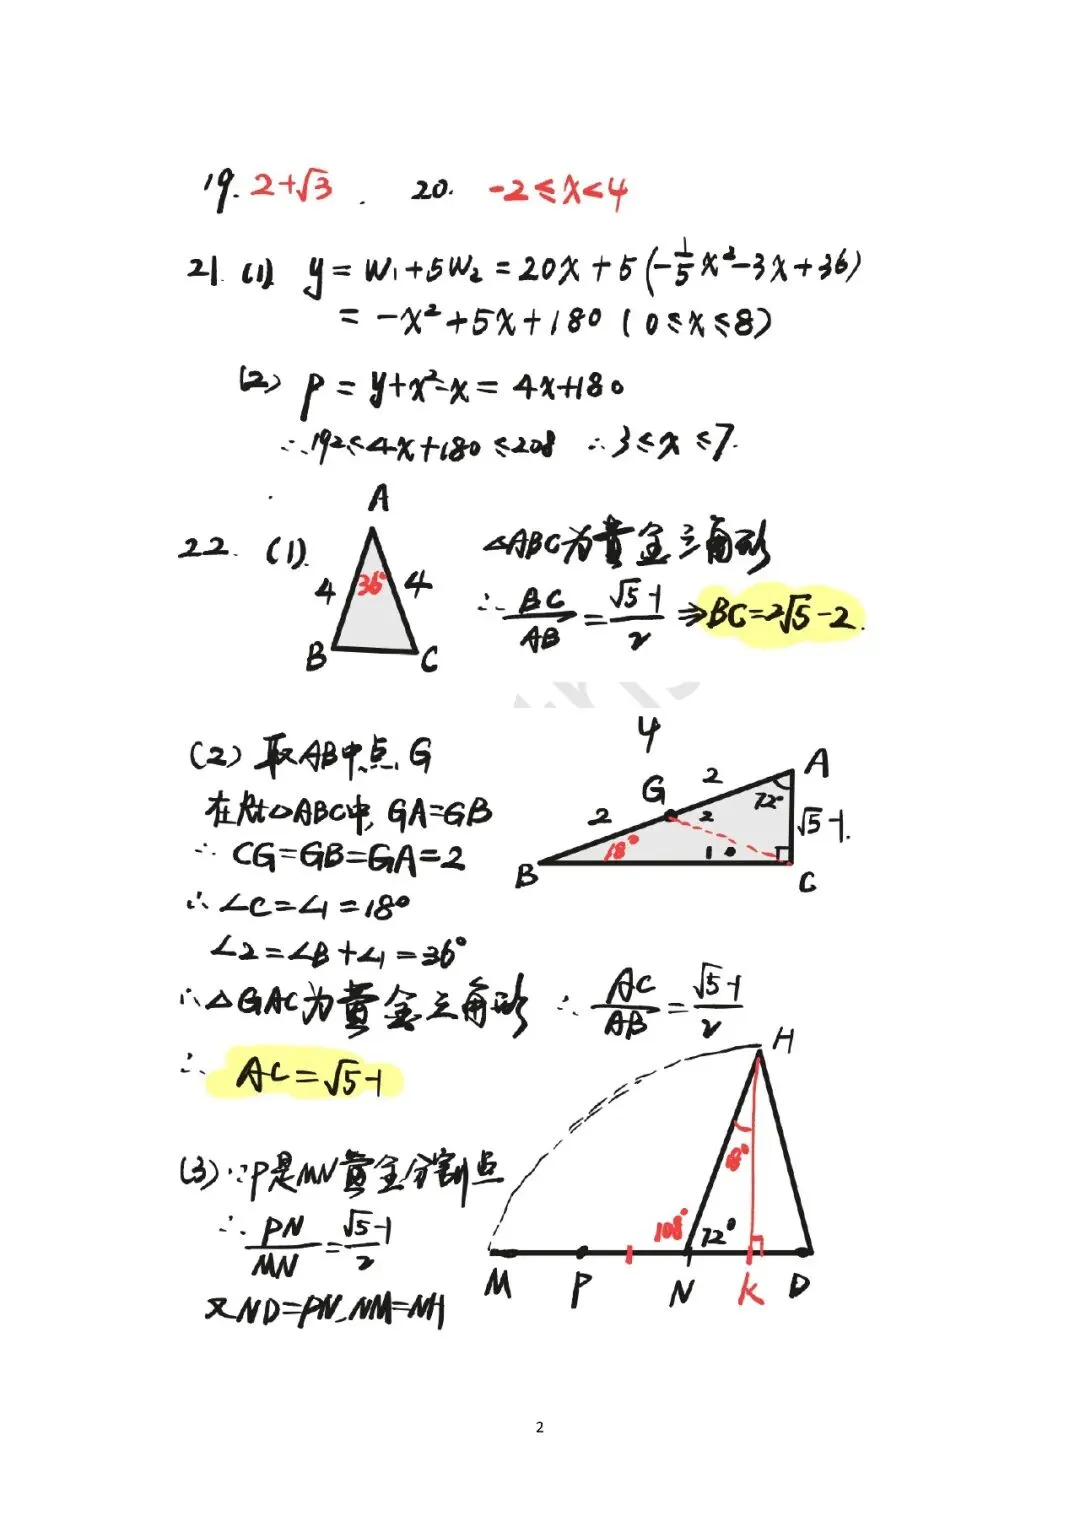 19. 2+√3 . 20. -2≤x<4
21. (1) y=W₁+5W₂=20x+5(-1/5x²-3x+36)
=-x²+5x+180 (0≤x≤8)
(2) P=y+x²-x=4x+180
∴192≤4x+180≤208 ∴3≤x≤7.
A
22. (1). 4 36° 4 B C
△ABC为黄金三角形
∴BC/AB=(√5-1)/2⇒BC=2√5-2.
(2) 取AB中点G
在Rt△ABC中, GA=GB
∴ CG=GB=GA=2
∴∠C=∠1=18°
∠2=∠B+∠1=36°
4
A 2 G 72° 2 2 √5-1. 18° 1 B C
∴△GAC为黄金三角形 ∴AC/AB=(√5-1)/2
∴ AC=√5-1
(3)∵P是MN黄金分割点
∴PN/MN=(√5-1)/2
又ND=PN、NM=NH
H
18°
108° 72°
M P N K D
2